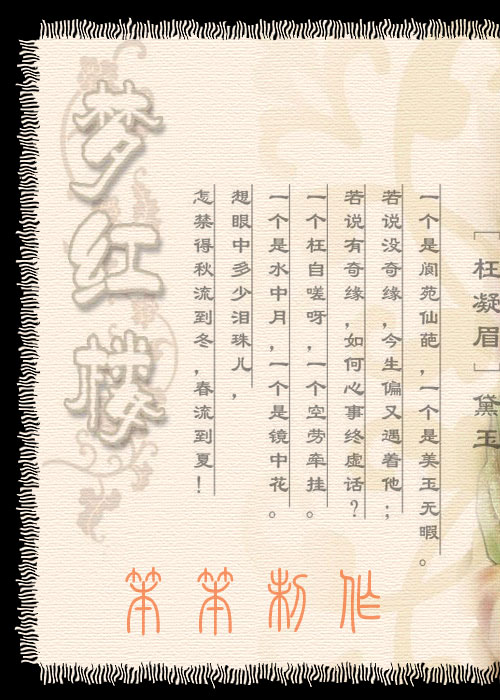 [枉凝眉]黛玉
一个是阆苑仙葩，一个是美玉无暇。
若说没奇缘，今生偏又遇着他；
若说有奇缘，如何心事终虚话？
一个枉自嗟呀，一个空劳牵挂。
一个是水中月，一个是镜中花。
想眼中多少泪珠儿，
怎禁得秋流到冬，春流到夏！
梦红楼
笨笨制作